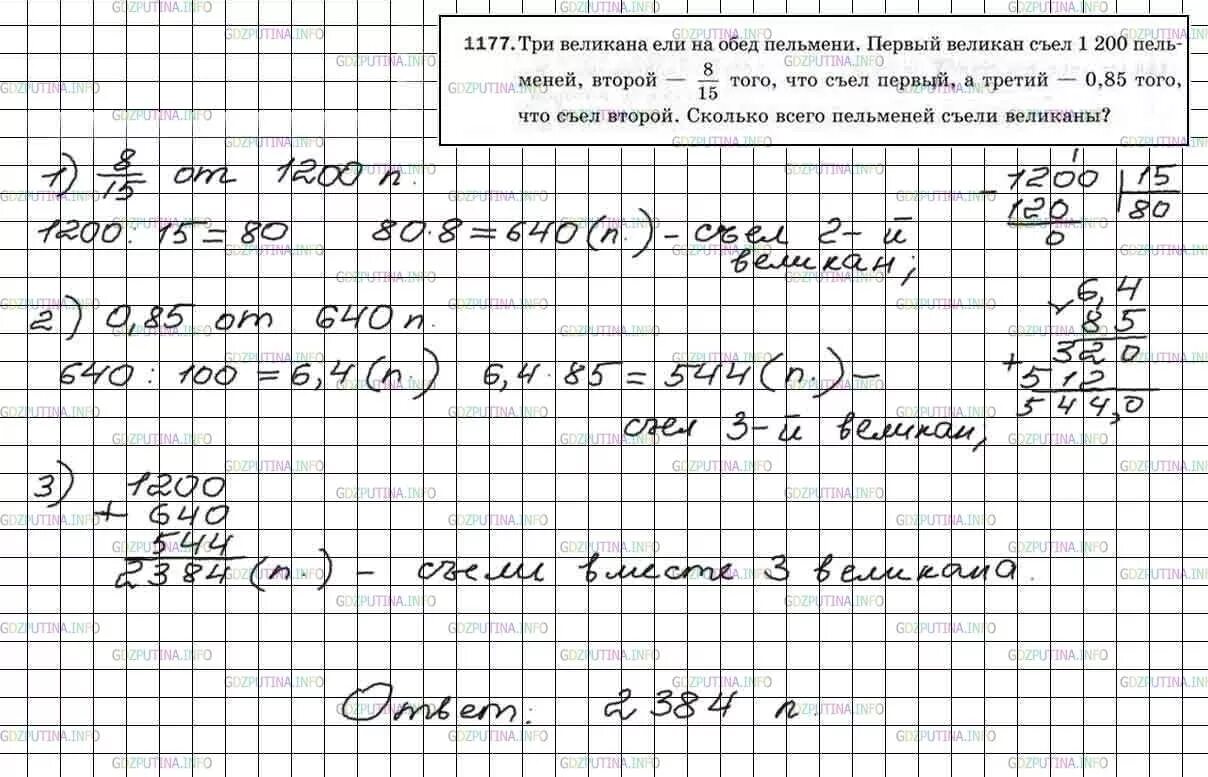 1177. Три великана ели на обед пельмени. Первый великан съел 1 200 пель-
меней, второй — 8/15 того, что съел первый, а третий — 0,85 того,
что съел второй. Сколько всего пельменей съели великаны?
1) 8/15 от 1200 п.
1200 : 15 = 80 80 · 8 = 640 (п.) – съел 2-й
великан;
1200 | 15
120 80
0
2) 0,85 от 640 п.
640 : 100 = 6,4 (п.) 6,4 · 85 = 544 (п.) –
съел 3-й великан;
× 6,4
85
+ 320
512
544,0
3) 1200
+ 640
544
2384 (п.) – съели вместе 3 великана.
Ответ: 2384 п.
GDZPUTINA.INFO